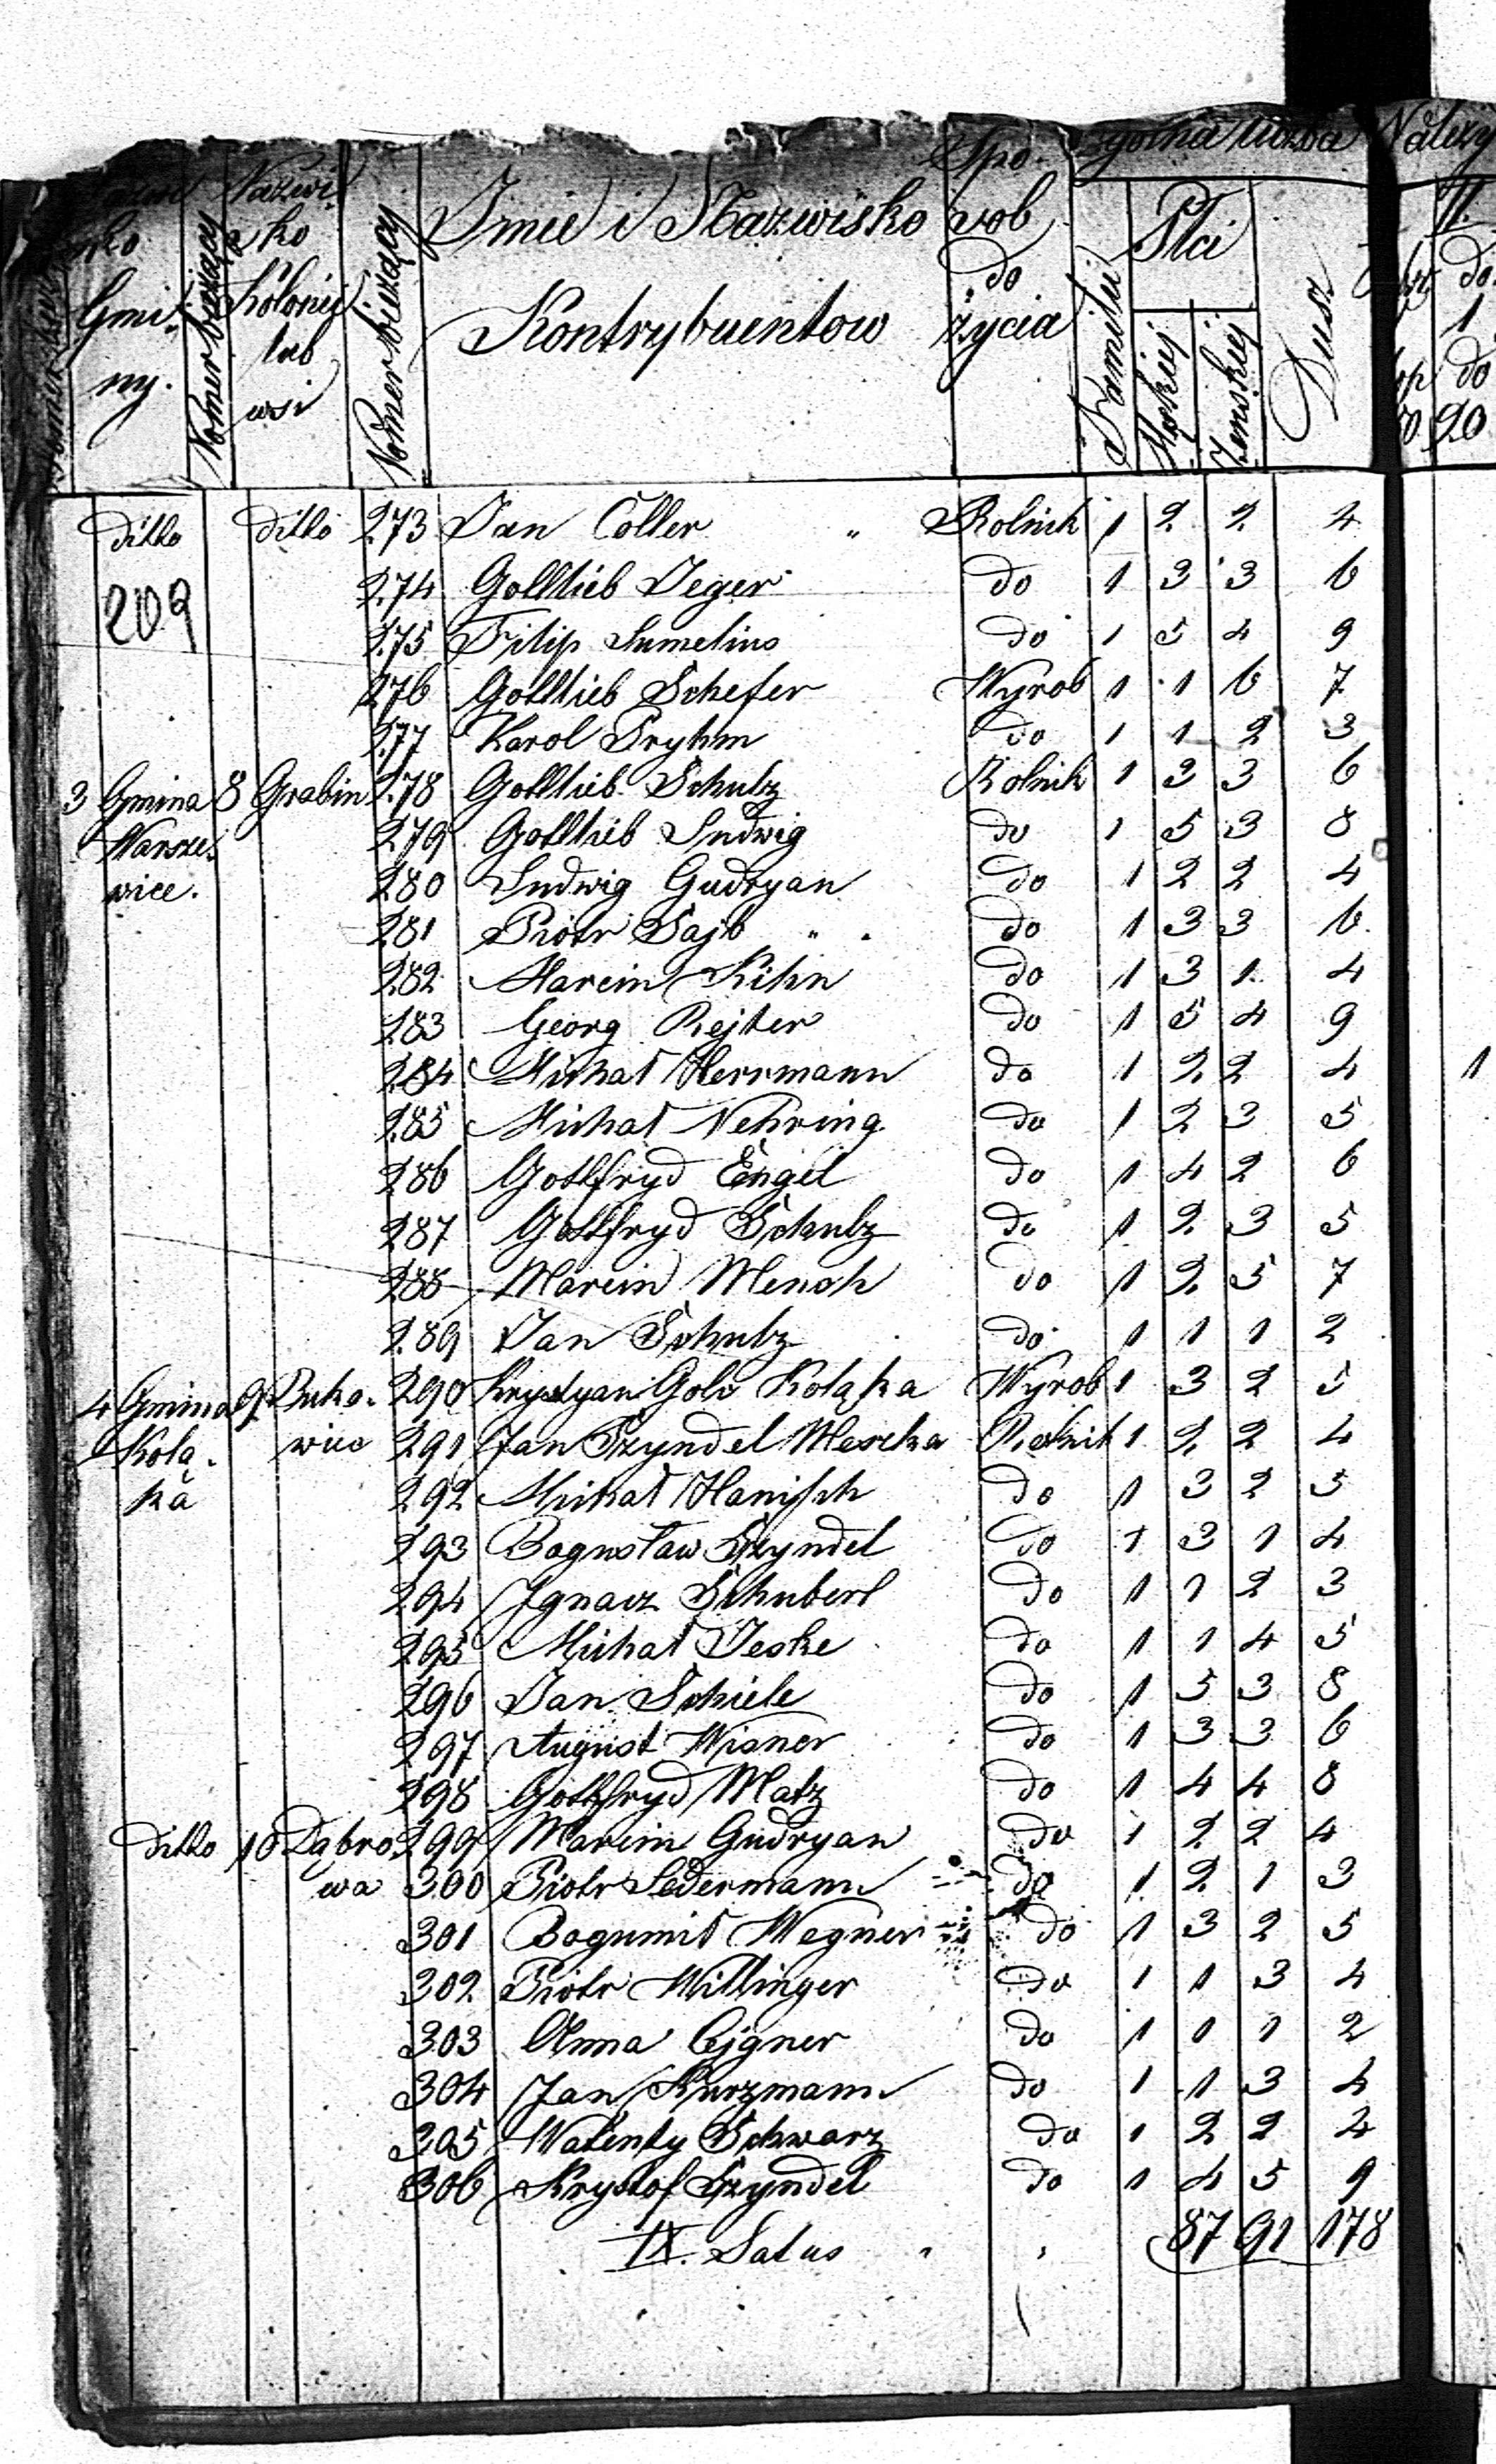 Nazwi
sko
Gmi-
ny.
Nomer bieżący
Nazwi
sko
Kolonii
lub
wsi
Nomer bieżący
Imie i Nazwisko
Kontrybuentow
Spo-
sob
do
życia
gólna liczba
Familii
Płci
Męskiej
Żenskiej
Dusz
Należy
II.
do
1
do
20
ditto ditto 273 Jan Coller " Rolnik 1 2 2 4
209
274 Gottlieb Jeger do 1 3 3 6
275 Filip Sumelius do 1 5 4 9
276 Gottlieb Schefer Wyrob 1 1 6 7
277 Karol Pryhm do 1 1 2 3
3 Gmina 8 Grabin 278 Gottlieb Schulz Rolnik 1 3 3 6
Warsze- 279 Gottlieb Ludwig do 1 5 3 8
wice. 280 Ludwig Gudryan do 1 2 2 4
281 Piotr Sajb " . do 1 3 3 6
282 Marcin Kihn do 1 3 1 4
283 Georg Rejter do 1 5 4 9
284 Michał Herrmann do 1 2 2 4 1
285 Michał Nehring do 1 2 3 5
286 Gottfryd Engel do 1 4 2 6
287 Gottfryd Schulz do 1 2 3 5
288 Marcin Mensh do 1 2 5 7
289 Jan Schulz do 1 1 1 2
4 Gmina 9 Buko- 290 Krystyan Golc Koląka Wyrob 1 3 2 5
Kolą- wiec 291 Jan Szyndel Meszka Rolnik 1 2 2 4
ka 292 Michał Hanisch do 1 3 2 5
293 Bogusław Szyndel do 1 3 1 4
294 Ignacz Schubert do 1 1 2 3
295 Michał Jeske do 1 1 4 5
296 Jan Schiele do 1 5 3 8
297 August Wisner do 1 3 3 6
298 Gottfryd Matz do 1 4 4 8
ditto 10 Dąbro- 299 Marcin Gudryan do 1 2 2 4
wa 300 Piotr Ledermann do 1 2 1 3
301 Bogumił Wegner do 1 3 2 5
302 Piotr Willinger do 1 1 3 4
303 Anna Cejgner do 1 1 1 2
304 Jan Kurzmann do 1 1 3 4
305 Walenty Schwarz do 1 2 2 4
306 Krystof Szyndel do 1 4 5 9
IX. Latus " " 87 91 178